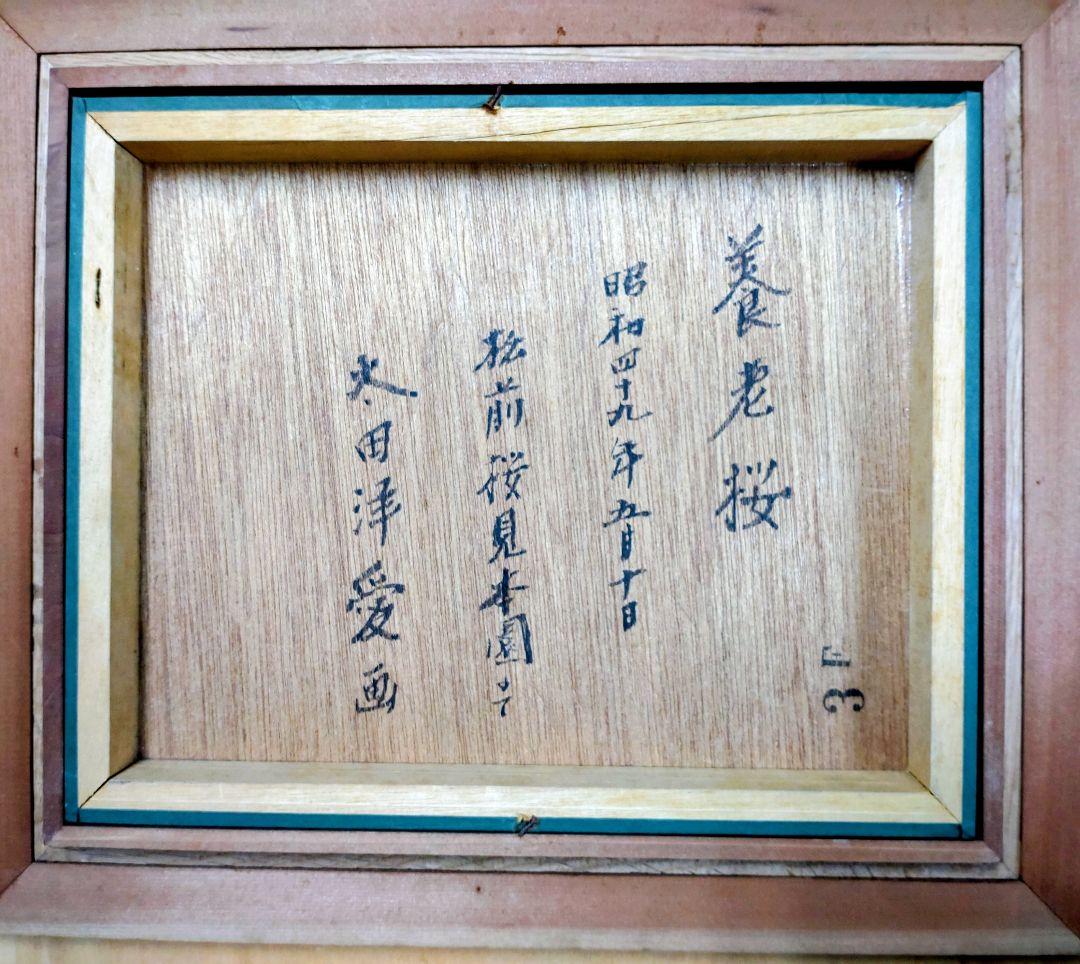 養老桜
昭和四十九年五月十日
松前桜見本園にて
太田洋愛画
3F